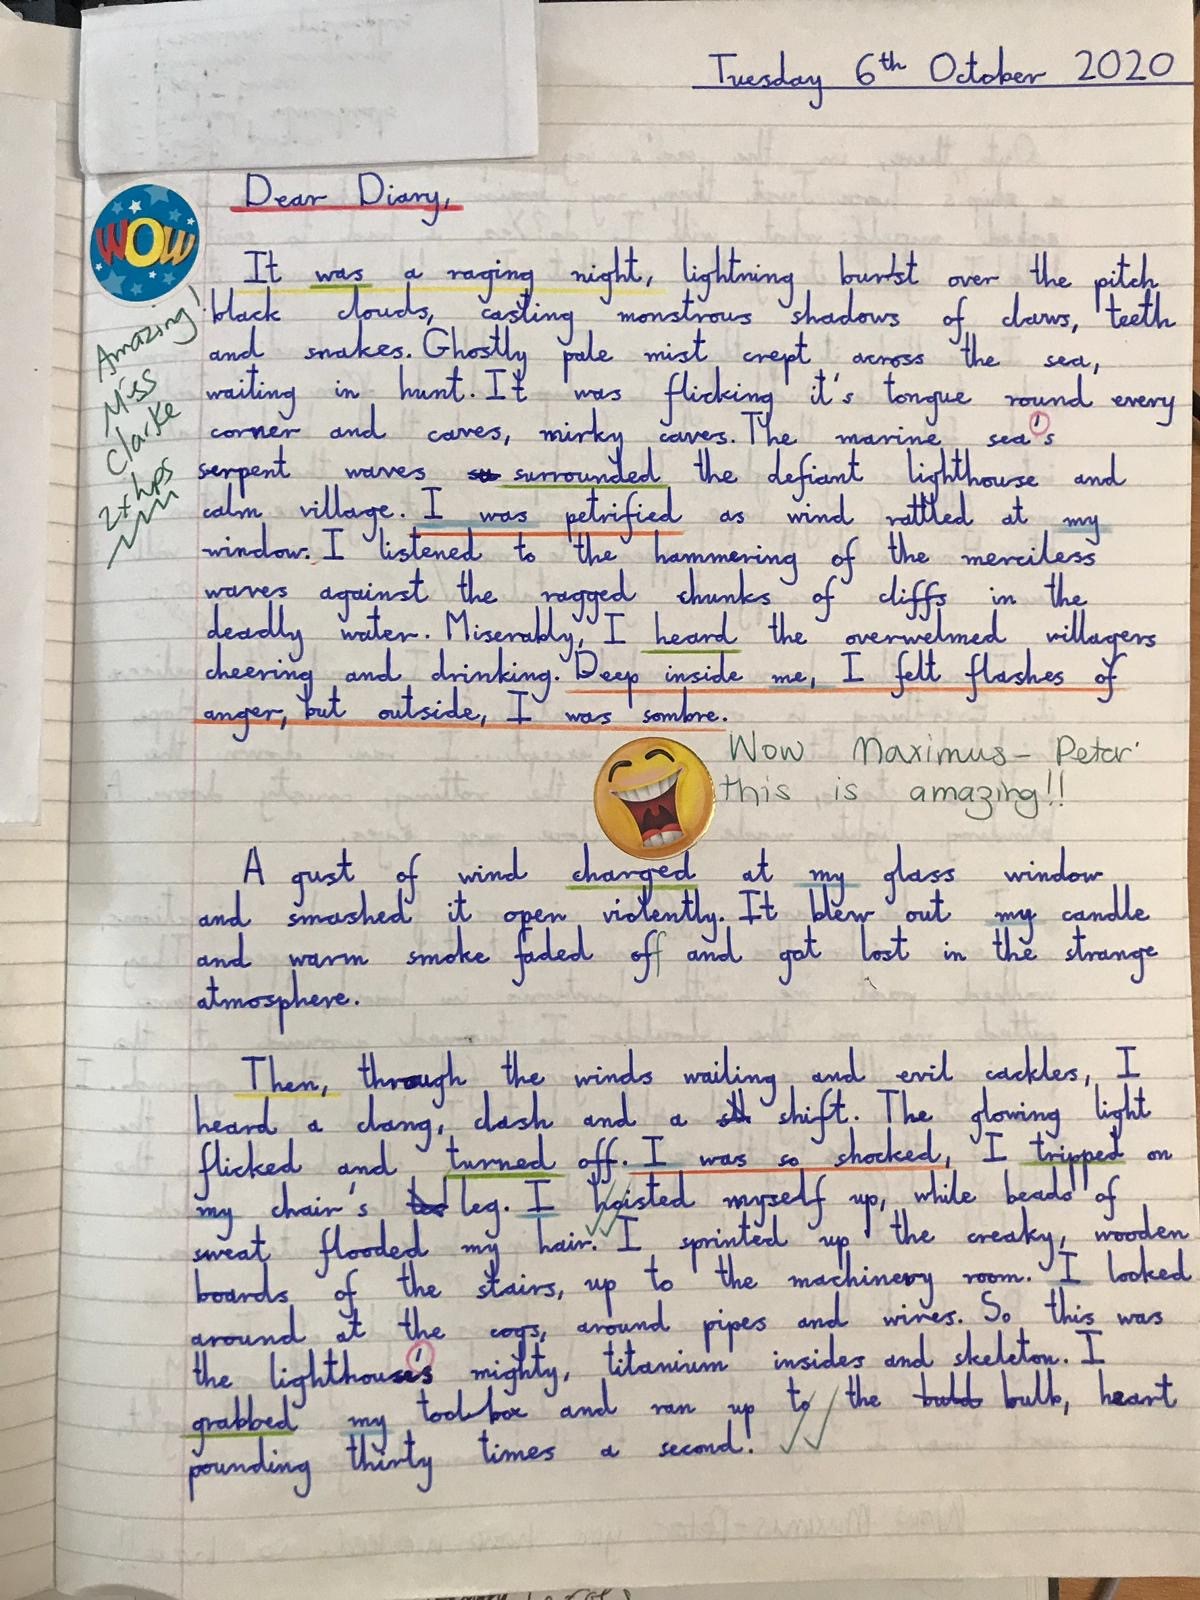 Tuesday 6th October 2020
Dear Diary,
WOW
Amazing!
Miss
Clarke
2+ hps
It was a raging night, lightning burst over the pitch
black clouds, casting monstrous shadows of claws, teeth
and snakes. Ghostly pale mist crept across the sea,
waiting in hunt. It was flicking it's tongue round every
corner and caves, mirky caves. The marine sea's
serpent waves surrounded the defiant lighthouse and
calm village. I was petrified as wind rattled at my
window. I listened to the hammering of the merciless
waves against the ragged chunks of cliffs in the
deadly water. Miserably, I heard the overwelmed villagers
cheering and drinking. Deep inside me, I felt flashes of
anger, but outside, I was sombre.
Wow Maximus-Petar
this is amazing!!
A gust of wind charged at my glass window
and smashed it open violently. It blew out my candle
and warm smoke faded off and got lost in the strange
atmosphere.
Then, through the winds wailing and evil cackles, I
heard a clang, clash and a shift. The glowing light
flicked and turned off. I was so shocked, I tripped on
my chair's leg. I hoisted myself up, while beads of
sweat flooded my hair. I sprinted up the creaky, wooden
boards of the stairs, up to the machinery room. I looked
around at the cogs, around pipes and wires. So this was
the lighthouse's mighty, titanium insides and skeleton. I
grabbed my toolbox and ran up to the bulb, heart
pounding thirty times a second!